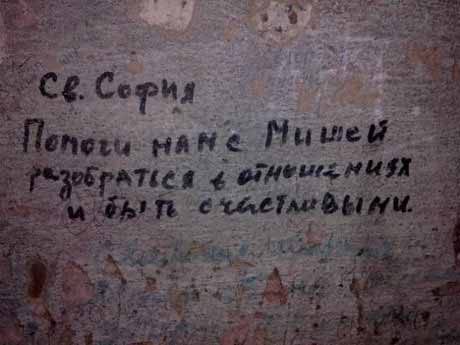 Св. София
Помоги нам с Мишей
разобраться в отношениях
и быть счастливыми.